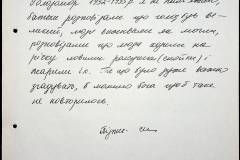 Голодомор 1932-1933 р. я не пам'ятаю,
батьки розповідали що голод був ве-
ликий, люди
розповідали що люди ходили на
річку ловили ракушки (скойки) і
жарили їх. Це що було дуже важко
згадувати, я молю бога щоб таке
не повторилось.